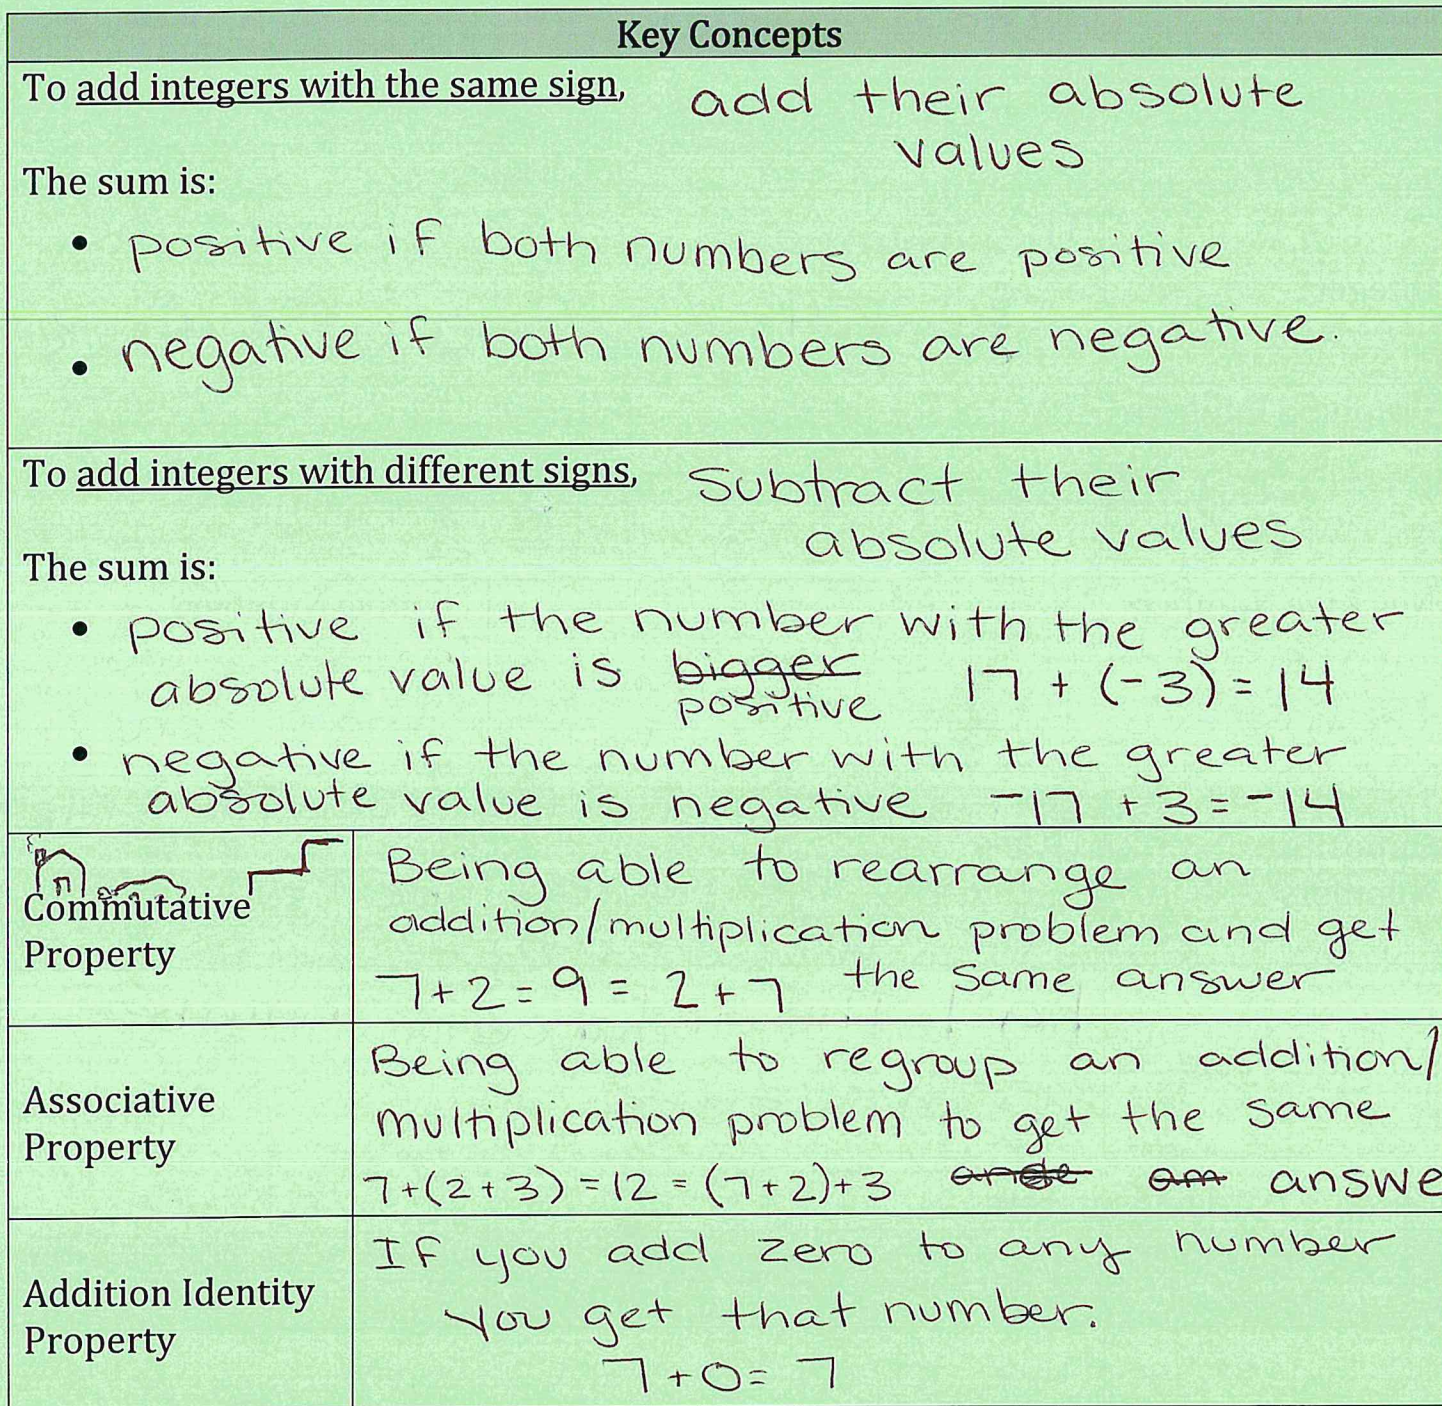 Key Concepts
To add integers with the same sign, add their absolute
values
The sum is:
• positive if both numbers are positive
• negative if both numbers are negative.
To add integers with different signs, Subtract their
absolute values
The sum is:
• positive if the number with the greater
absolute value is bigger 17 + (-3) = 14
positive
• negative if the number with the greater
absolute value is negative -17 + 3 = -14
Commutative
Property
Being able to rearrange an
addition/multiplication problem and get
7+2 = 9 = 2+7 the same answer
Associative
Property
Being able to regroup an addition/
multiplication problem to get the same
7+(2+3) = 12 = (7+2)+3 answe
Addition Identity
Property
If you add zero to any number
you get that number.
7+0= 7